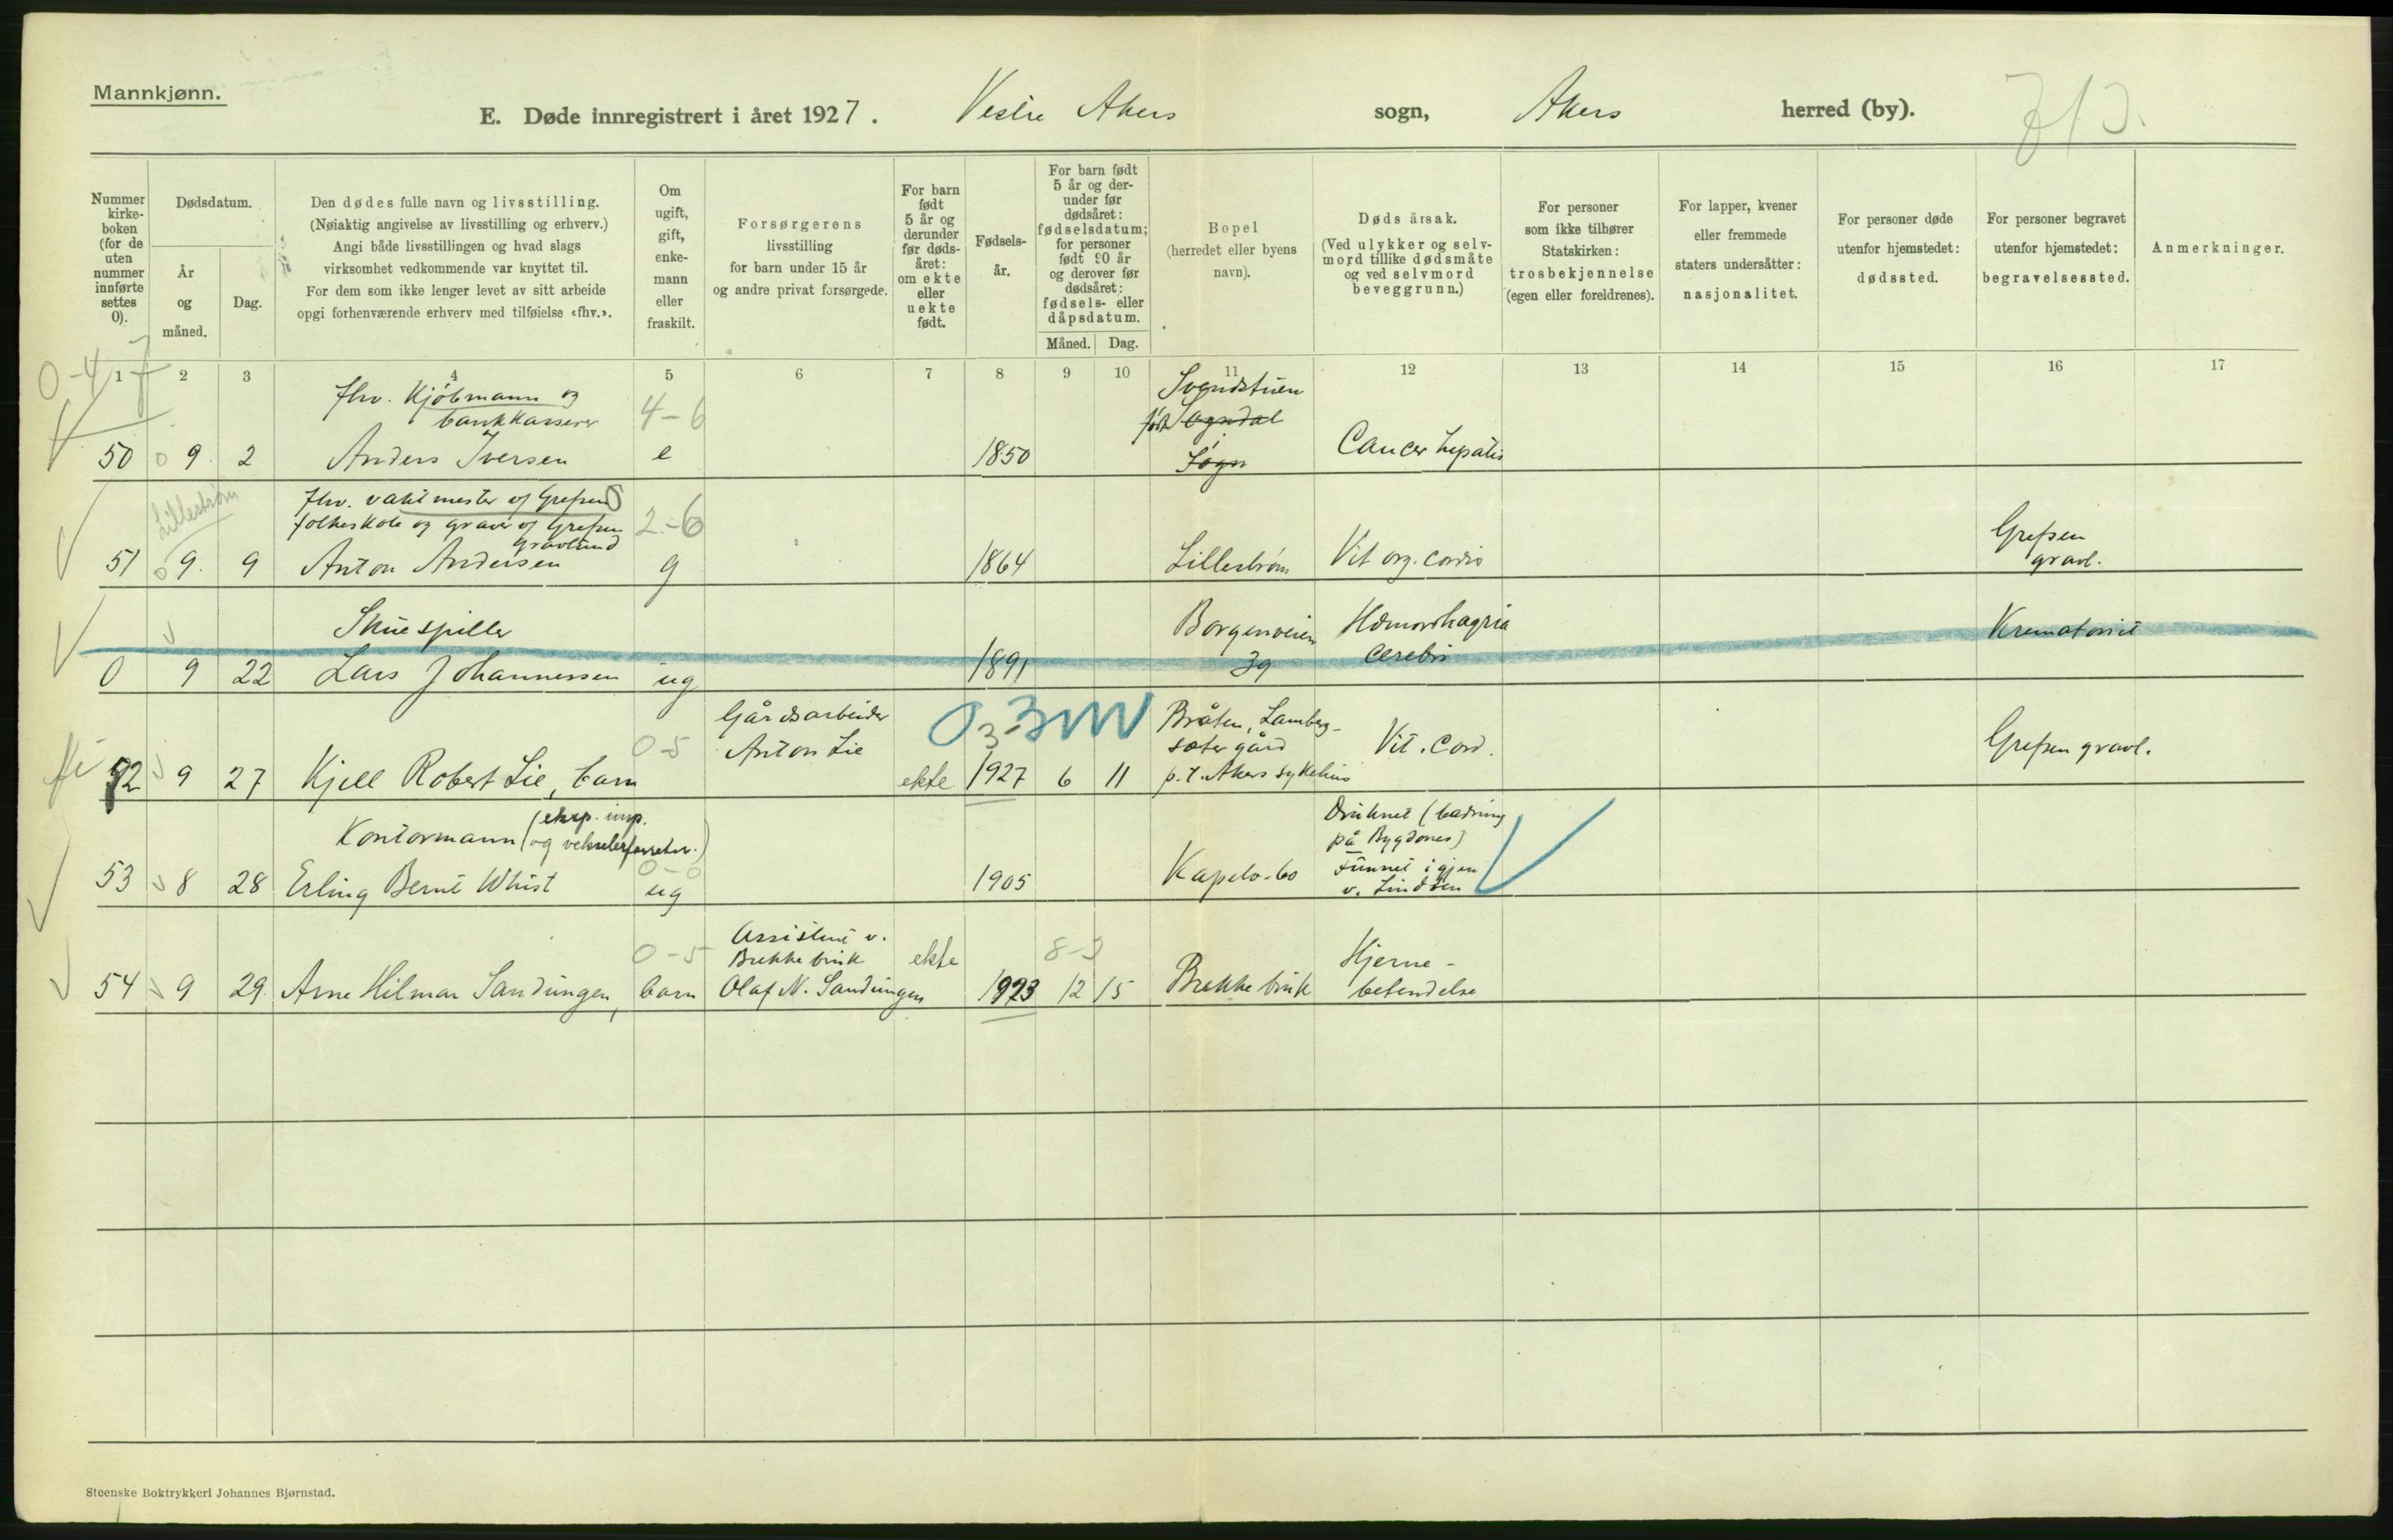 Mannkjønn.
E. Døde innregistrert i året 1927. Vestre Akers sogn, Akers herred (by).
Nummer
kirke-
boken
(for de
uten
nummer
innførte
settes
0).
Dødsdatum.
År
og
måned.
Dag.
Den dødes fulle navn og livsstilling.
(Nøiaktig angivelse av livsstilling og erhverv.)
Angi både livsstillingen og hvad slags
virksomhet vedkommende var knyttet til.
For dem som ikke lenger levet av sitt arbeide
opgi forhenværende erhverv med tilføielse «fhv.».
Om
ugift,
gift,
enke-
mann
eller
fraskilt.
Forsørgerens
livsstilling
for barn under 15 år
og andre privat forsørgede.
For barn
født
5 år og
derunder
før døds-
året:
om ekte
eller
uekte
født.
Fødsels-
år.
For barn født
5 år og der-
under før
dødsåret:
fødselsdatum;
for personer
født 90 år
og derover før
dødsåret:
fødsels- eller
dåpsdatum.
Måned. Dag.
Bopel
(herredet eller byens
navn).
Dødsårsak.
(Ved ulykker og selv-
mord tillike dødsmåte
og ved selvmord
beveggrunn.)
For personer
som ikke tilhører
Statskirken:
trosbekjennelse
(egen eller foreldrenes).
For lapper, kvener
eller fremmede
staters undersåtter:
nasjonalitet.
For personer døde
utenfor hjemstedet:
dødssted.
For personer begravet
utenfor hjemstedet:
begravelsessted.
Anmerkninger.
0-4
1 2 3 4 5 6 7 8 9 10 11 12 13 14 15 16 17
fhv. Kjøbmann og
bankkasserer
4-6
Svendstuen
Sogndal
Sogn
50 0 9 2 Anders Iversen e 1850 Cancer hepatis
Lillestrøm
fhv. vaktmester v/ Grefsen
folkeskole og graver v/ Grefsen
gravlund
2-6
51 0 9. 9 Anton Andersen g 1864 Lillestrøm Vit org. cordis
Grefsen
gravl.
Skuespiller
Borgenveien
39
Hæmorrhagria
cerebri
Krematoriet
0 9 22 Lars Johannessen ug 1891
Gårdsarbeider
Anton Lie
0-5
Bråten, Lamberg-
sæter gård
p.t. Akers sykehus
Vit. Cord.
Grefsen gravl.
52 9 27 Kjell Robert Lie, barn ekte 1927 6 11
Kontormann (eksp. insp.
og vekselerforretn.)
0-0
Druknet (badning
på Bygdønes)
Funnet igjen
v. Lindøen
53 8 28 Erling Bernt Whist ug 1905 Kapelv. 60
0-5
Assistent v.
Brekke bruk
ekte
8-3
Hjerne-
betendelse
54 9 29. Arne Hilmar Sandungen, barn Olaf N. Sandungen 1923 12 15 Brekke bruk
Steenske Boktrykkeri Johannes Bjørnstad.